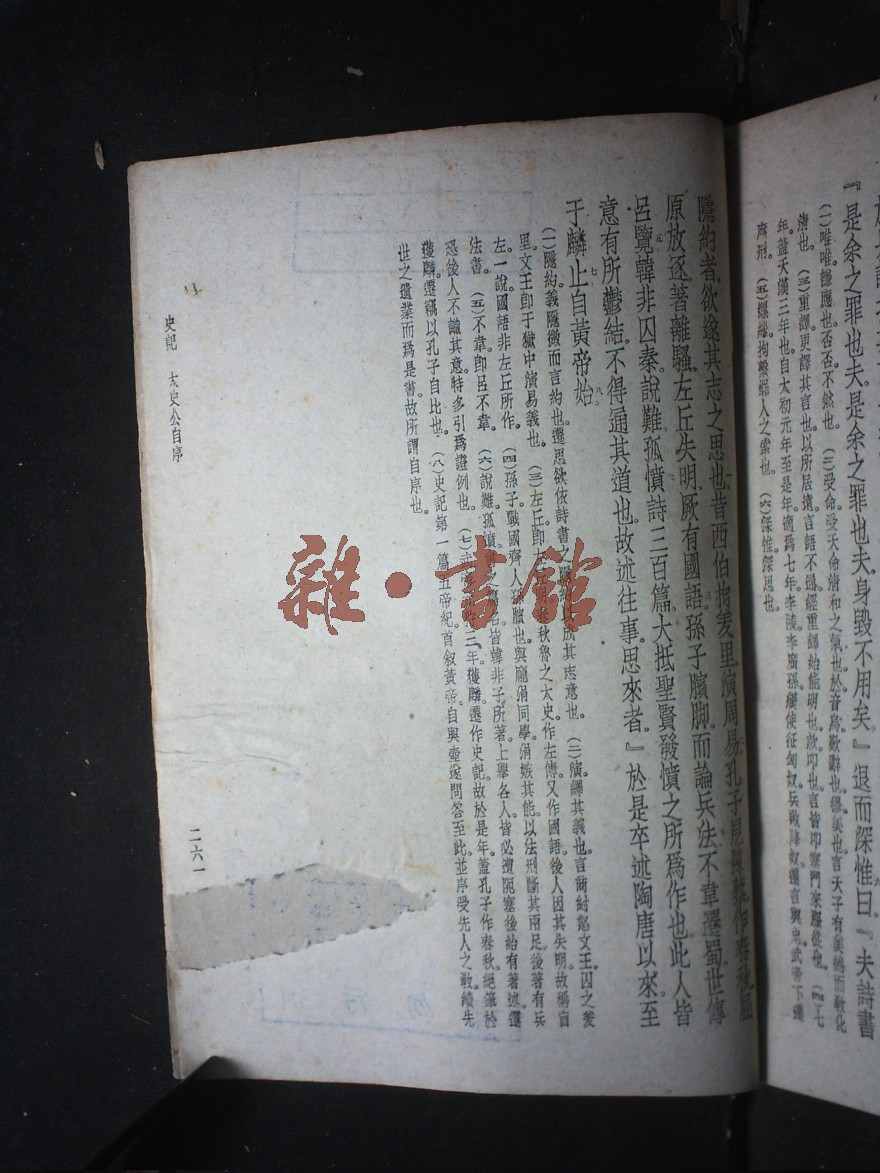 『是余之罪也夫是余之罪也夫身毀不用矣』退而深惟曰『夫詩書
(一)唯唯謙應也否否不然也。(二)受命受天命清和之氣也於音烏歎辭也穆美也言天子有美德而敎化
清也。(三)重譯更譯其言也以所居遠言語不通經重譯始能明也款叩也言皆叩塞門來服從也。(四)七
年蓋天漢三年也自太初元年至是年適爲七年李陵李廣孫續使征匈奴兵敗降奴遷言與忠武帝下遷
腐刑。(五)縲紲拘繫罪人之索也。(六)深惟深思也。
隱約者欲遂其志之思也昔西伯拘羑里演周易孔子戹陳蔡作春秋屈
原放逐著離騷左丘失明厥有國語孫子臏脚而論兵法不韋遷蜀世傳
呂覽韓非囚秦說難孤憤詩三百篇大抵聖賢發憤之所爲作也此人皆
意有所鬱結不得通其道也故述往事思來者』於是卒述陶唐以來至
于麟止自黃帝始
(一)隱約義隱微而言約也。遷思欲依詩書之隱約以成其志意也。(二)演繹其義也言商紂怒文王囚之羑
里文王卽于獄中演易義也。(三)左丘卽左丘明春秋魯之太史作左傳又作國語後人因其失明故稱盲
左一說國語非左丘所作。(四)孫子戰國齊人孫臏也。與龐涓同學涓嫉其能以法刑斷其兩足後著有兵
法書。(五)不韋卽呂不韋。(六)說難孤憤書之篇名皆韓非子所著。上舉各人皆必遭阨塞後始有著述遷
恐後人不識其意特多引爲證例也。(七)三年獲麟遷作史記故於是年。蓋孔子作春秋絕筆於
獲麟遷竊以孔子自比也。(八)史記第一篇五帝紀首叙黃帝。自與壺遂問答至此。並序受先人之敎續先
世之遺業而爲是書故所謂自序也。
史記 太史公自序
二六一
雜·書館